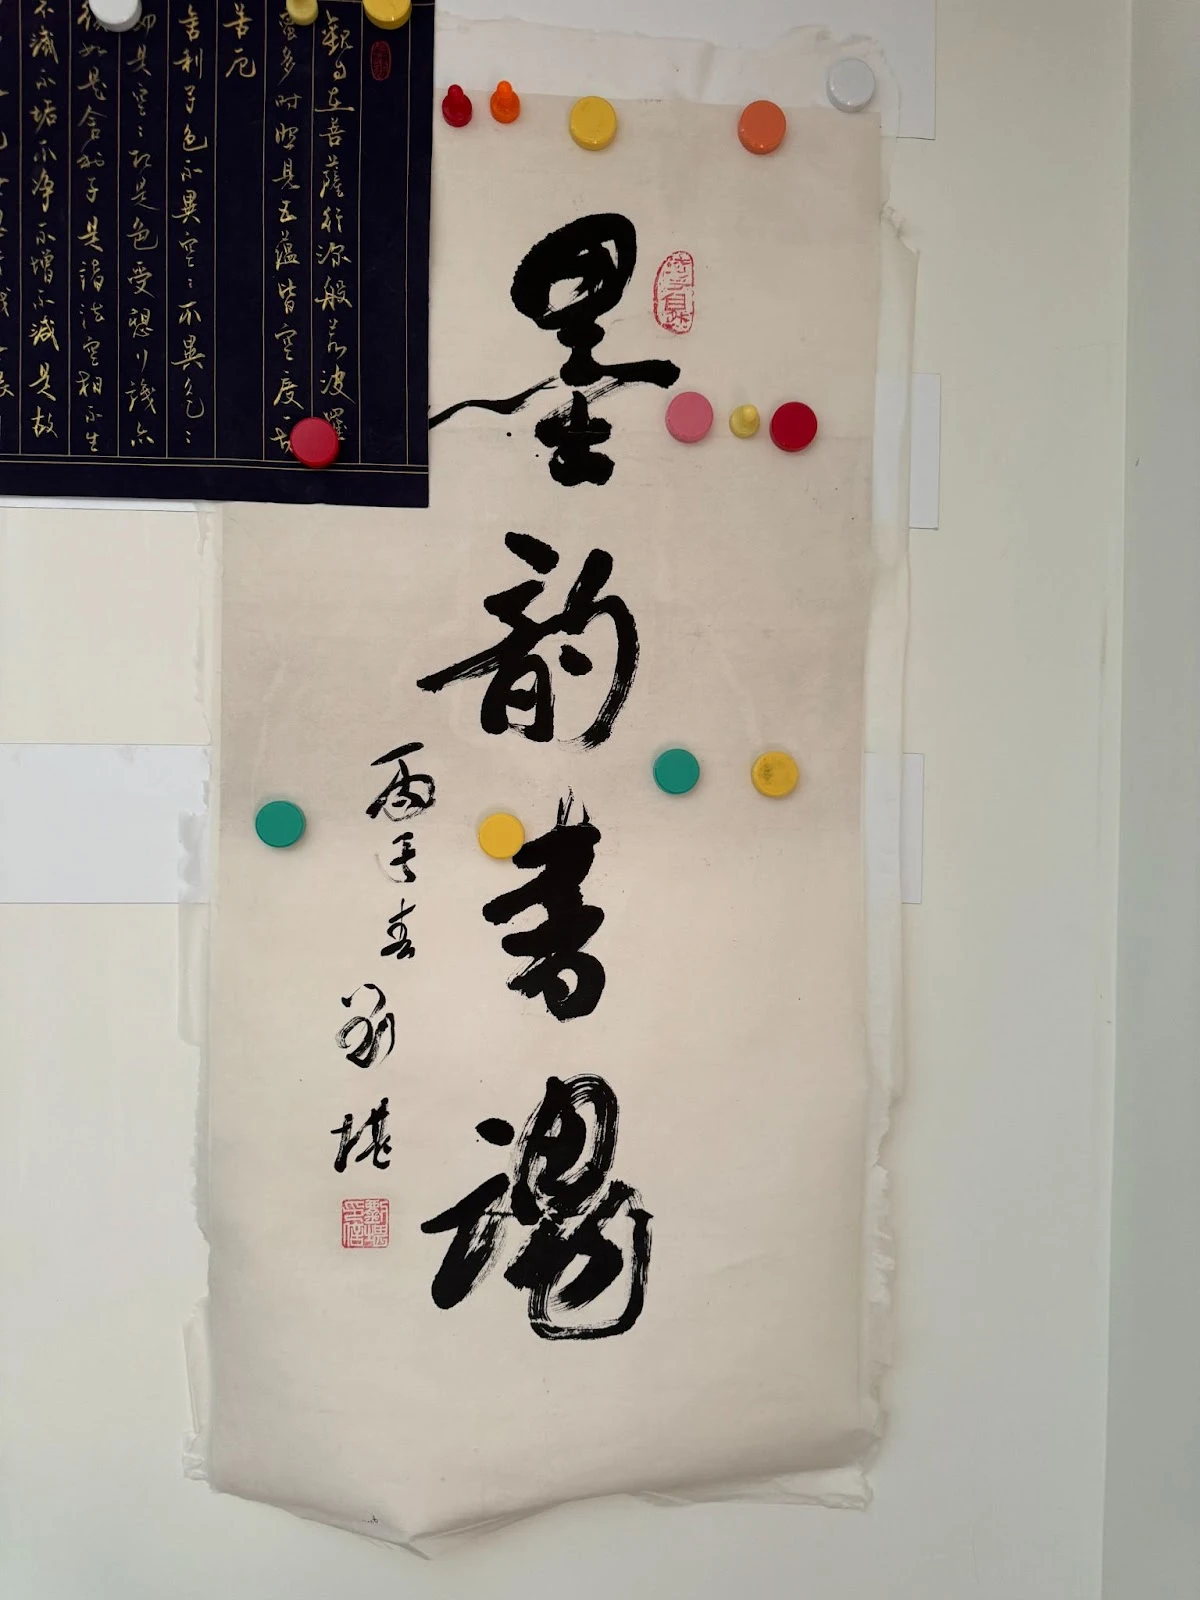 觀自在菩薩行深般若波羅
蜜多時照見五蘊皆空度一切
苦厄
舍利子色不異空〻不異色〻
即是空〻即是色受想行識亦
復如是舍利子是諸法空相不生
不滅不垢不净不增不減是故
墨韵書魂
丙午春
劉堪